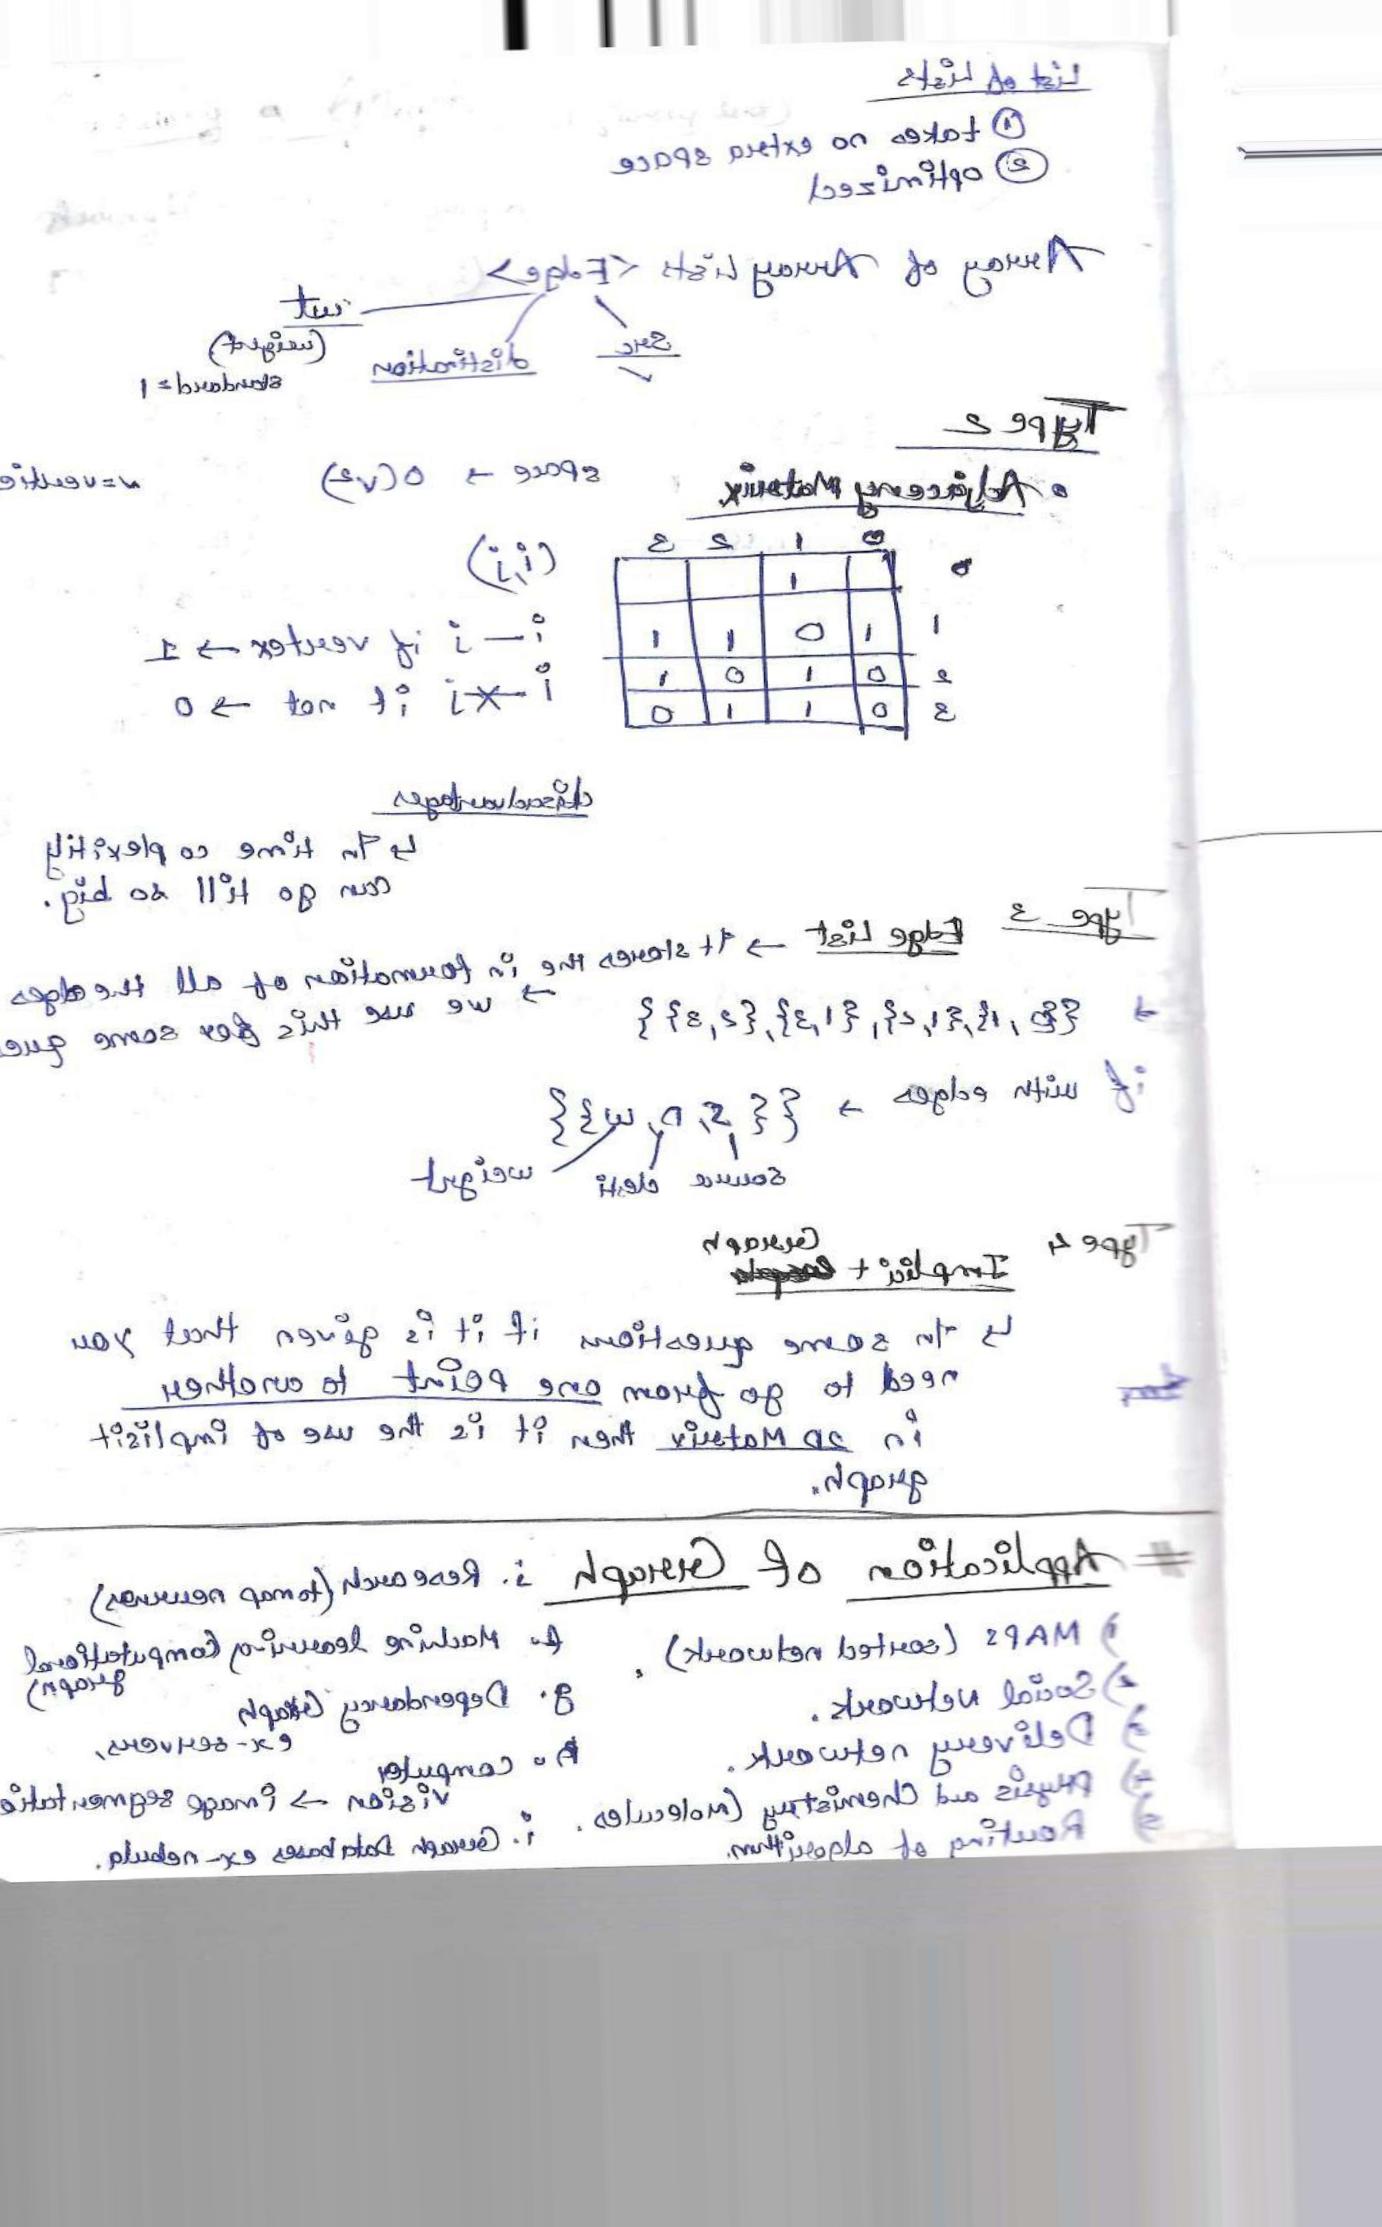 List of Lists
① takes no extra space
② optimized
Array of Array Lists <Edge>
Src
distination
wt
(weight)
standard = 1
Type 2
• Adjacency Matrix space → O(v²)
0 1 2 3
0 1
1 1 0 1 1
2 0 1 0 1
3 0 1 1 0
(i,j)
i — j if vertex → 1
i -x- j if not → 0
disadvantages
↳ In time coplexitity
can go till so big.
Type 3 Edge List → It stores the information of all the edges
→ {{0,1},{1,2},{1,3},{2,3}}
→ we use this for some
if with edges → {{S, D, W}}
source desti weight
Type 4 Implicit Graph
↳ In some questions if it is given that you
need to go from one point to another
in 2D Matrix then it is the use of implisit
graph.
# Application of Graph
1) MAPS (sorted network)
2) Social Network.
3) Delivery network.
4) Physis and Chemistry (molecules.
5) Routing of algorithm.
Research (to map neurons)
Machine learning (Computational
graph)
g. Dependancy Graph
ex-servers,
h. Computer
vision → Image
i. Graph Databases ex-nebula.